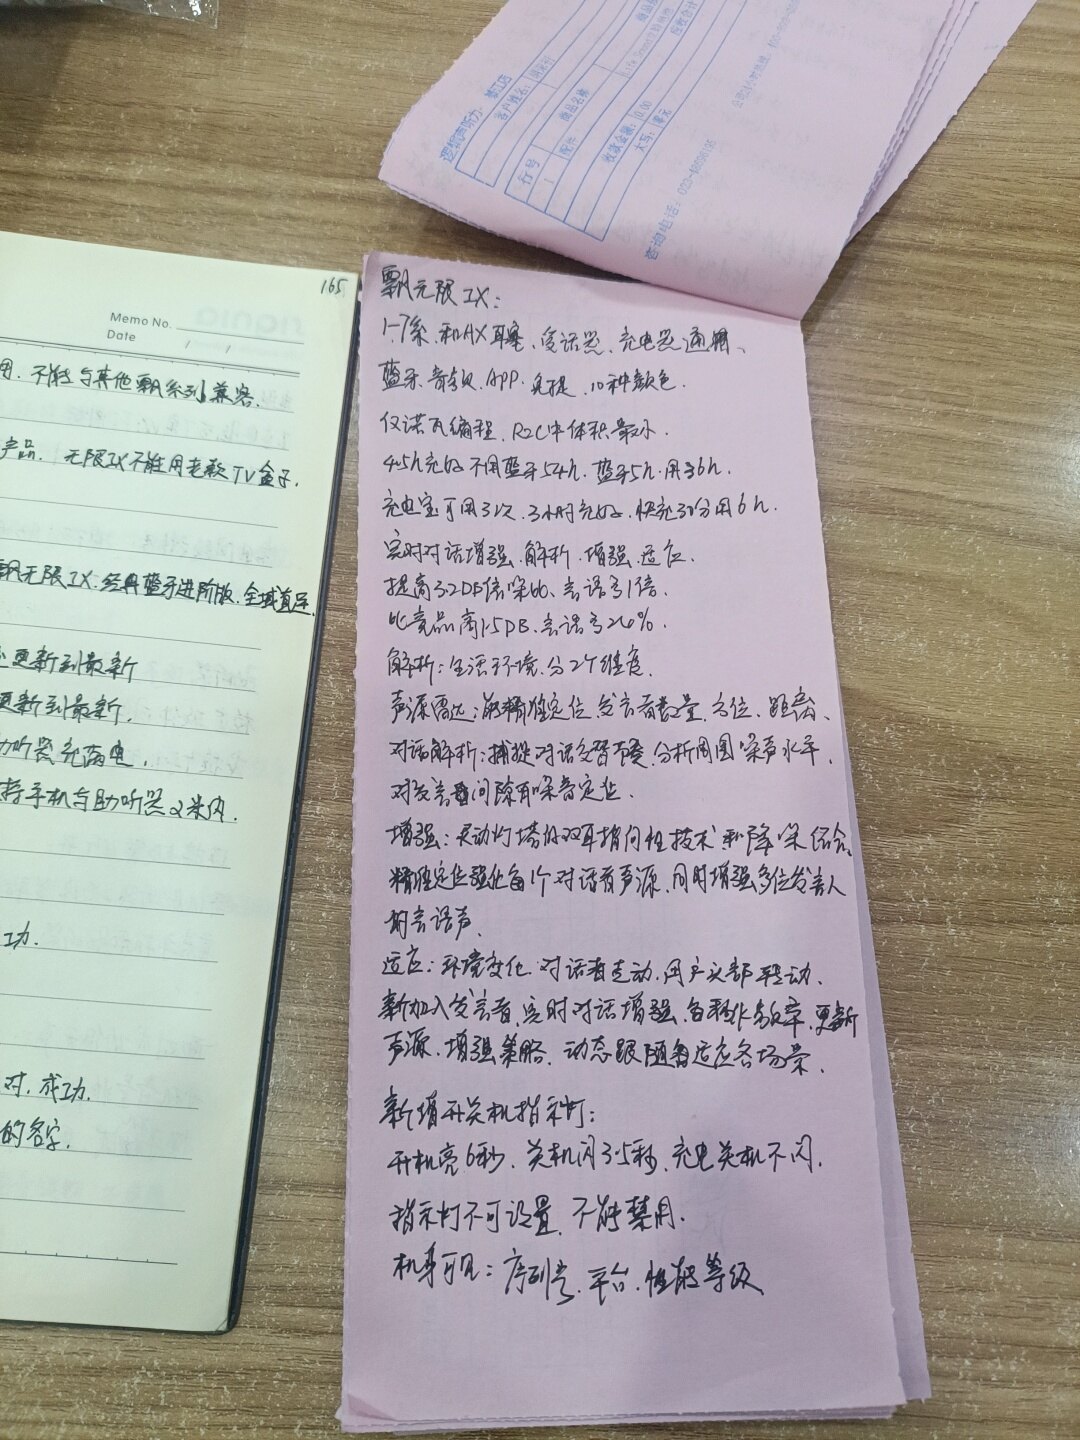 逻辑声听力 綦江店
客户姓名：
行号 商品名称
1 配件
收款金额：10.00
大写：壹元
咨询电话：023-48696135
165
Memo No.
Date / /
用，不能与其他飘系列兼容．
产品． 无限IX不能用老款TV盒子．
飘无限IX．经典蓝牙进阶版．全域直连
更新到最新
更新到最新．
助听器充满电．
持手机与助听器2米内．
功．
对．成功．
的名字．
飘无限IX：
1-7系、和AX耳塞、受话器、充电器通用、
蓝牙、音频、APP、免提、10种颜色．
仅诺瓦编程、R2C中体积最小．
4.5h充好不用蓝牙54h．蓝牙5h．用36h．
充电宝可用3次．3小时充好．快充30分用6h．
实时对话增强、解析、增强、适应．
提高3.2DB信噪比、言语多1倍．
比竞品高1.5DB、言语多20%．
解析：生活环境．分2个维度．
声源雷达：精准定位发言者数量、方位、距离、
对话解析：捕捉对话交替节奏．分析周围噪声水平．
对发言者间隙有噪音定位．
增强：灵动灯塔的双耳指向性技术和降噪结合。
精准定位强化每1个对话者声源．同时增强多位发言人
的言语声．
适应：环境变化．对话者走动．用户头部转动．
新加入发言者．实时对话增强．更新
声源、增强策略．动态跟随着适应各场景．
新增开关机指示灯：
开机亮6秒．关机闪3.5秒．充电关机不闪．
指示灯不可设置．不能禁用．
机身可见：序列号、平台、性能等级